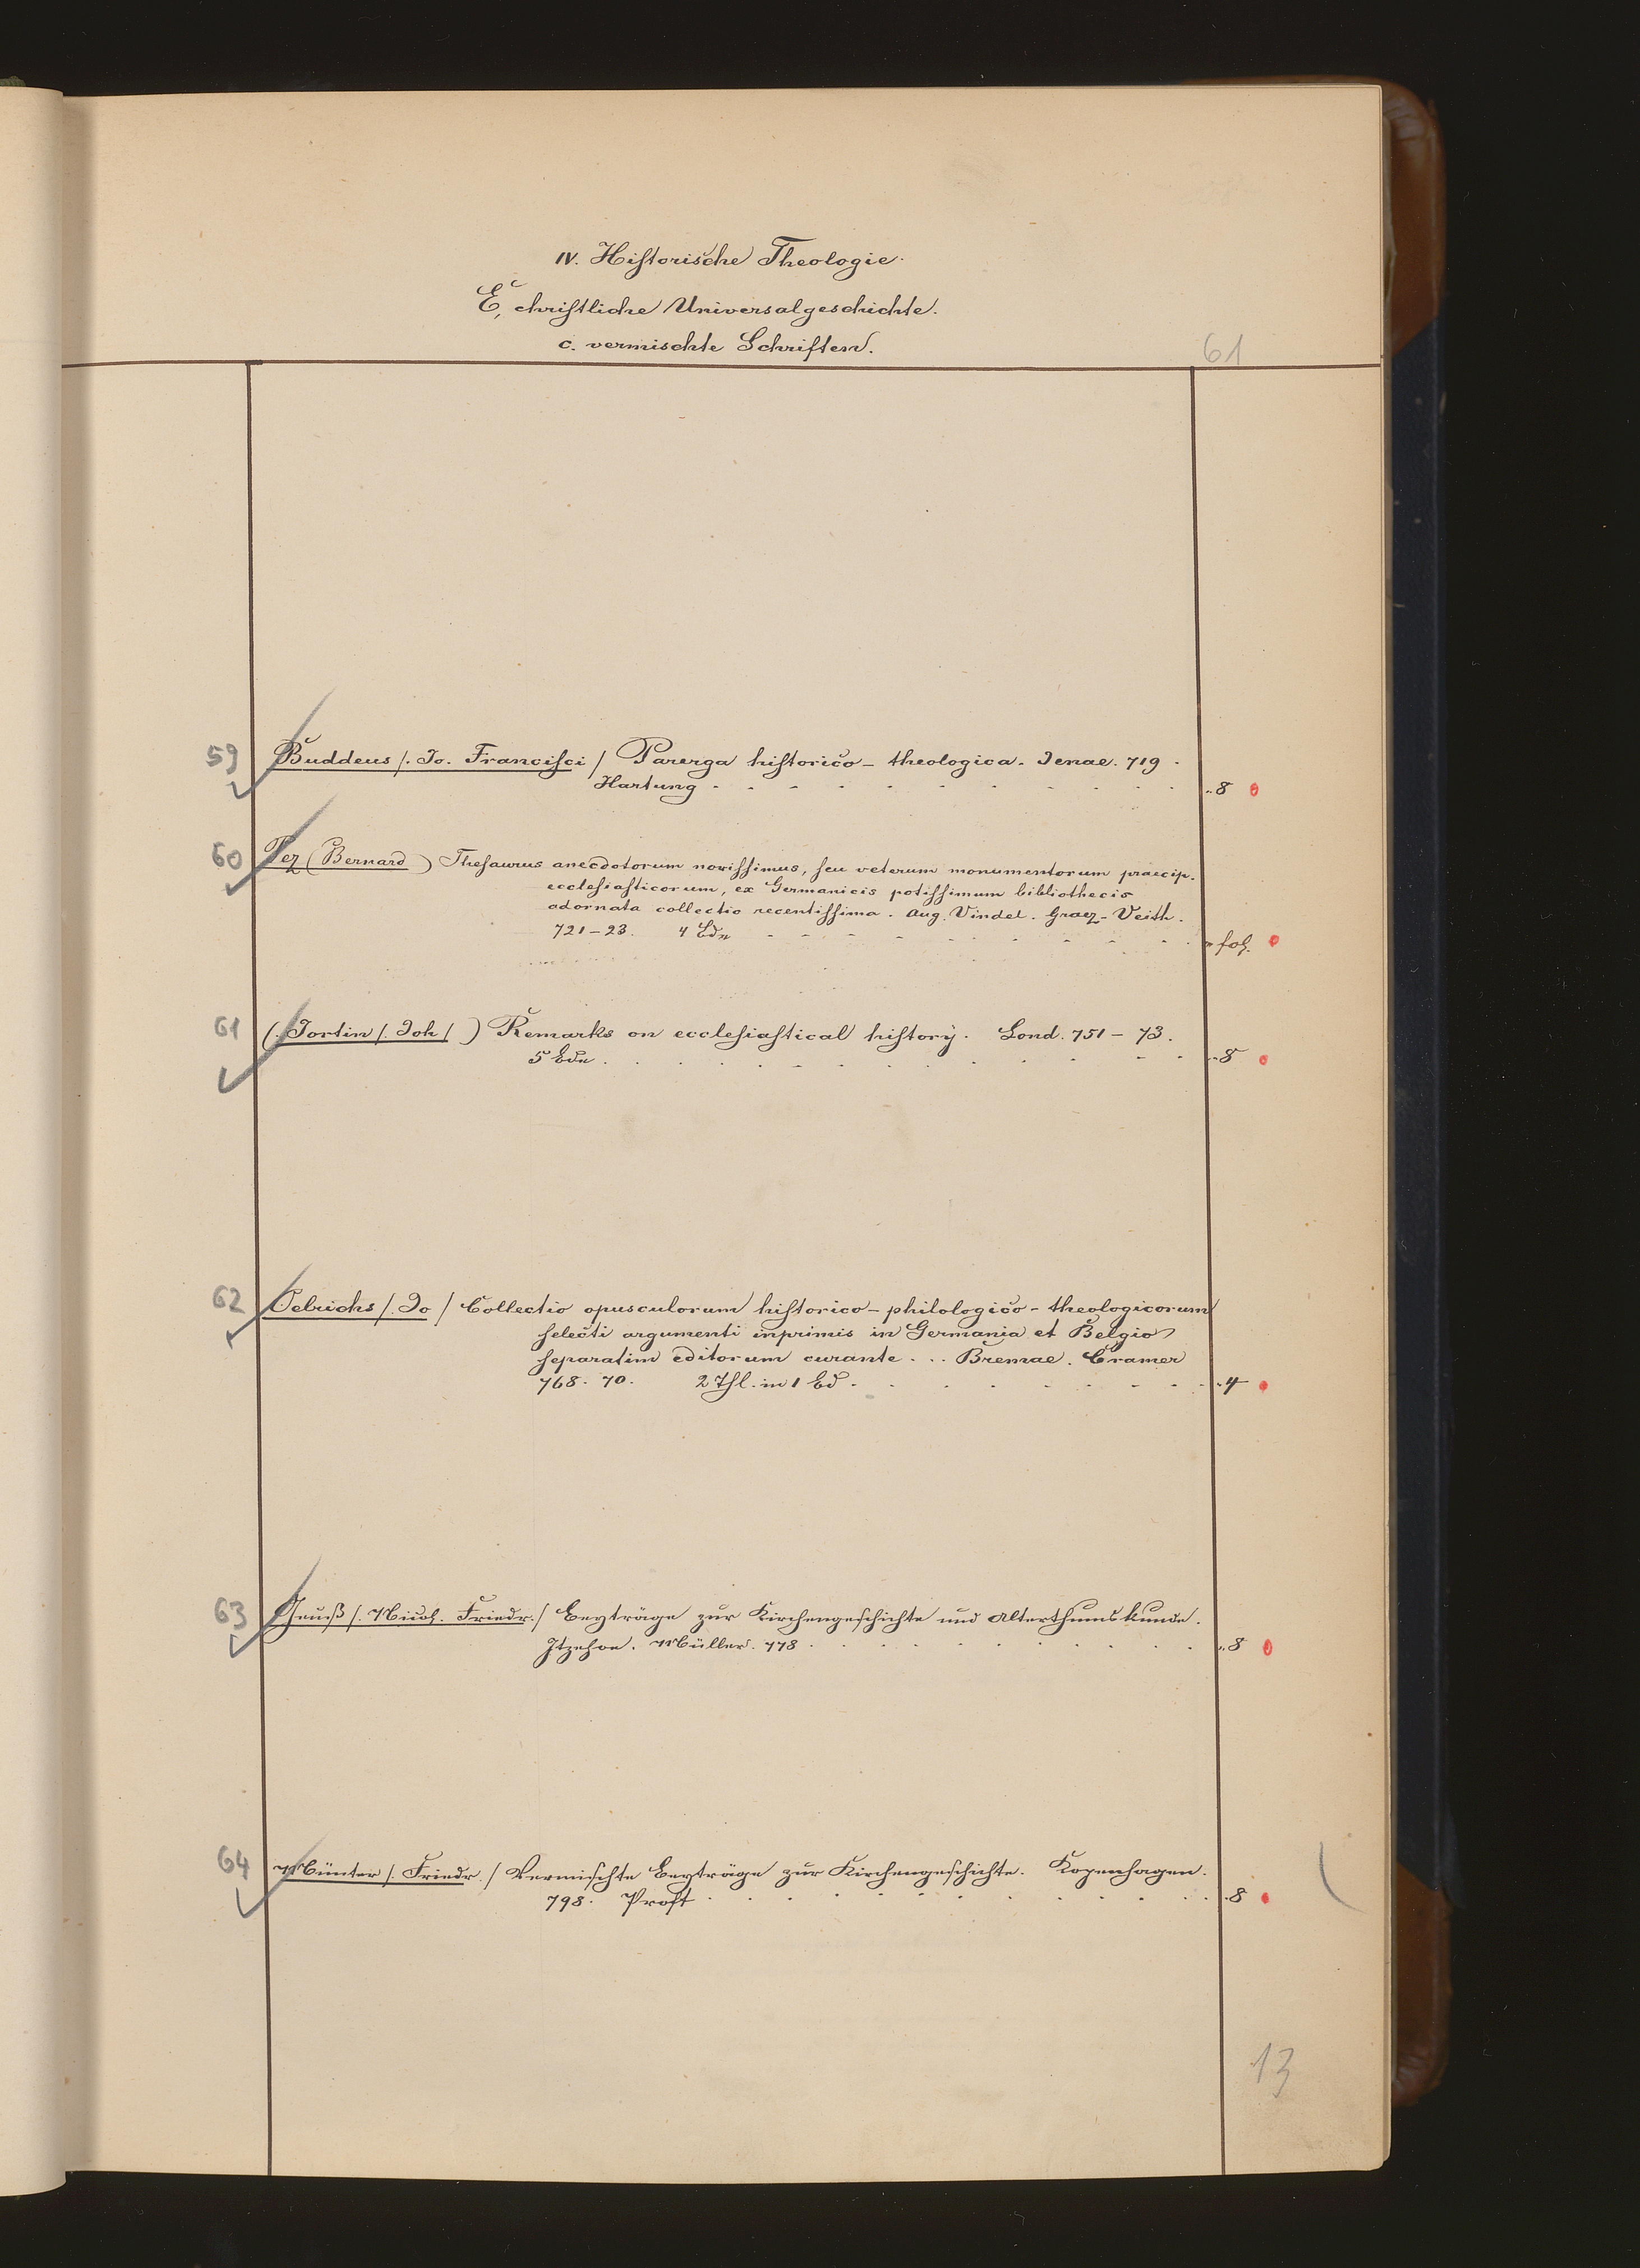 IV. Historische Theologie.
E, christliche Universalgeschichte.
c. vermischte Schriften.
61
59 Buddeus /. Jo. Francisci / Parerga historico-theologica. Jenae. 719.
Hartung . . . . . . . . . . . 8
60 Pez (Bernard) Thesaurus anecdotorum novissimus, seu veterum monumentorum praecip.
ecclesiasticorum, ex Germanicis potissimum bibliothecis
adornata collectio recentissima. Aug. Vindel. Graez-Veith.
721-23. 4 Bde - - - - - - - - - fol.
61 (. Jortin /. Joh / ) Remarks on ecclesiastical history. Lond. 751-73.
5 Bde . . . . . . . . . . . . 8
62 Oelrichs /. Jo / Collectio opusculorum historico-philologico-theologicorum
selecti argumenti inprimis in Germania et Belgio
separatim editorum curante ... Bremae. Cramer
768. 70. 2 Thl. in 1 Bd . . . . . . . . . 4
63 /. Nicol. Friedr. / Beyträge zur Kirchengeschichte und Alterthumskunde.
Itzehoe. Müller. 778 . . . . . . . . . 8
64 Münter /. Friedr. / Vermischte Beyträge zur Kirchengeschichte. Kopenhagen.
798. Proft . . . . . . . . . . . . 8
13